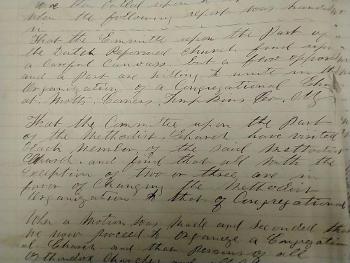 were then called upon
when the following report was handed
in
That the Committee upon the Part of
the Dutch Reformed Church find upon
a careful Canvass but a few opposed
and a Part are willing to unite in the
Organization of a Congregational Church
at Motts Corners Tompkins Co.
That the Committee upon the Part
of the Methodist Church have visited
Each member of the said Methodist
Church and find that all with the
exception of two or three are in
favor of Changing the Methodist
Organization to that of Congregational
When a motion was made and seconded that
we now proceed to Organize a Congregation
al Church and that Persons of all
Orthodox Churches